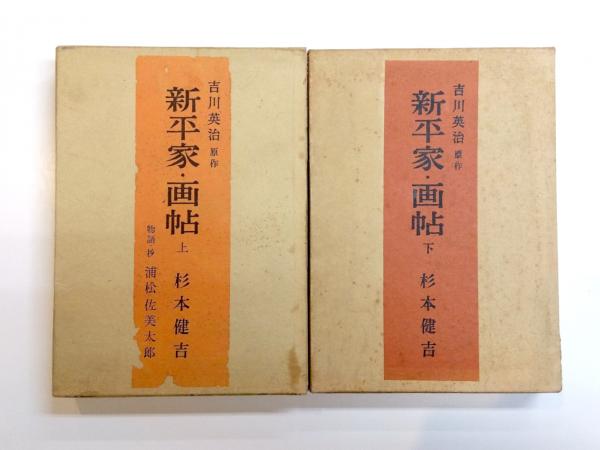 吉川英治 原作
新平家・画帖 上
杉本健吉
物語抄 浦松佐美太郎
吉川英治 原作
新平家・画帖 下
杉本健吉